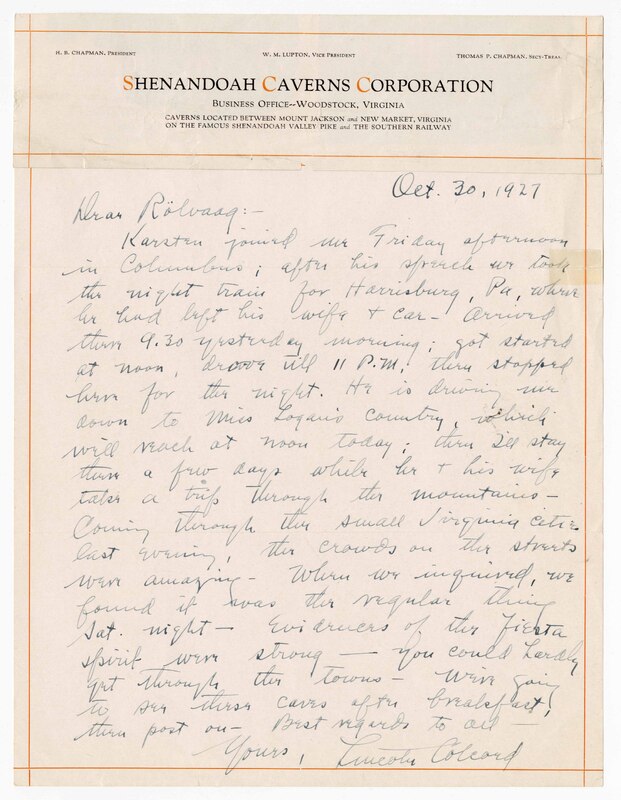 H. B. CHAPMAN, PRESIDENT
W. M. LUPTON, VICE PRESIDENT
THOMAS P. CHAPMAN, SECY-TREAS.
SHENANDOAH CAVERNS CORPORATION
BUSINESS OFFICE--WOODSTOCK, VIRGINIA
CAVERNS LOCATED BETWEEN MOUNT JACKSON and NEW MARKET, VIRGINIA
ON THE FAMOUS SHENANDOAH VALLEY PIKE and THE SOUTHERN RAILWAY
Oct. 30, 1927
Dear Rölvaag:-
Karsten joined me Friday afternoon
in Columbus; after his speech we took
the night train for Harrisburg, Pa, where
he had left his wife + car - Arrived
there 9.30 yesterday morning; got started
at noon, drove till 11 P.M., then stopped
here for the night. He is driving me
down to Miss Logan's country, which
will reach at noon today; then I'll stay
there a few days while he + his wife
take a trip through the mountains -
Coming through the small Virginia cities
last evening, the crowds on the streets
were amazing - When we inquired, we
found it was the regular thing
Sat. night - Evidences of the fiesta
spirit were strong - you could hardly
get through the towns - We're going
to see these caves after breakfast,
then post on - Best regards to all -
Yours, Lincoln Colcord